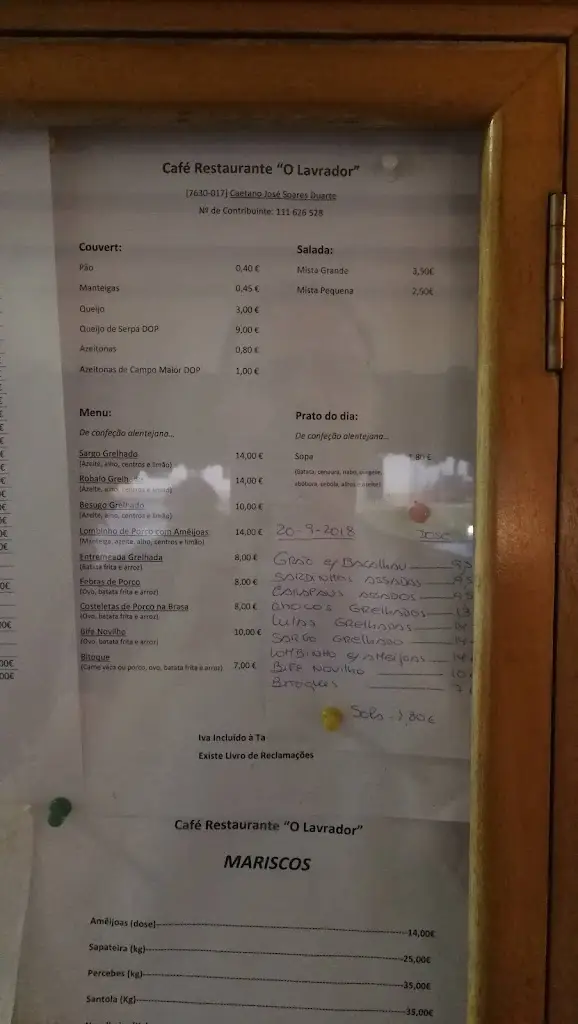 Café Restaurante "O Lavrador"
(7630-017) Caetano José Soares Duarte
Nº de Contribuinte: 111 626 528
Couvert:
Pão 0,40 €
Manteigas 0,45 €
Queijo 3,00 €
Queijo de Serpa DOP 9,00 €
Azeitonas 0,80 €
Azeitonas de Campo Maior DOP 1,00 €
Salada:
Mista Grande 3,50€
Mista Pequena 2,50€
Menu:
De confeção alentejana...
Sargo Grelhado 14,00 €
(Azeite, alho, centros e limão)
Robalo Grelh 14,00 €
(Azeite, alho, centros e limão)
Besugo Grelhado 10,00 €
(Azeite, alho, centros e limão)
Lombinho de Porco com Amêijoas 14,00 €
(Manteiga, azeite, alho, centros e limão)
Entremeada Grelhada 8,00 €
(Batata frita e arroz)
Febras de Porco 8,00 €
(Ovo, batata frita e arroz)
Costeletas de Porco na Brasa 8,00 €
(Ovo, batata frita e arroz)
Bife Novilho 10,00 €
(Ovo, batata frita e arroz)
Bitoque 7,00 €
(Carne vaca ou porco, ovo, batata frita e arroz)
Prato do dia:
De confeção alentejana...
Sopa ,80 €
(Batata, cenoura, nabo,
abóbora, cebola, alho
20-9-2018
Grão c/ Bacalhau
Sardinhas Assadas
Carapaus Assados
Chocos Grelhados 13
Lulas Grelhadas
Sargo Grelhado 14
Lombinho c/ Ameijoas 14
Bife Novilho 10
Bitoques 7
,80€
Iva Incluído à Ta
Existe Livro de Reclamações
Café Restaurante "O Lavrador"
MARISCOS
Amêijoas (dose) 14,00€
Sapateira (kg) 25,00€
Percebes (kg) 35,00€
Santola (Kg) 35,00€